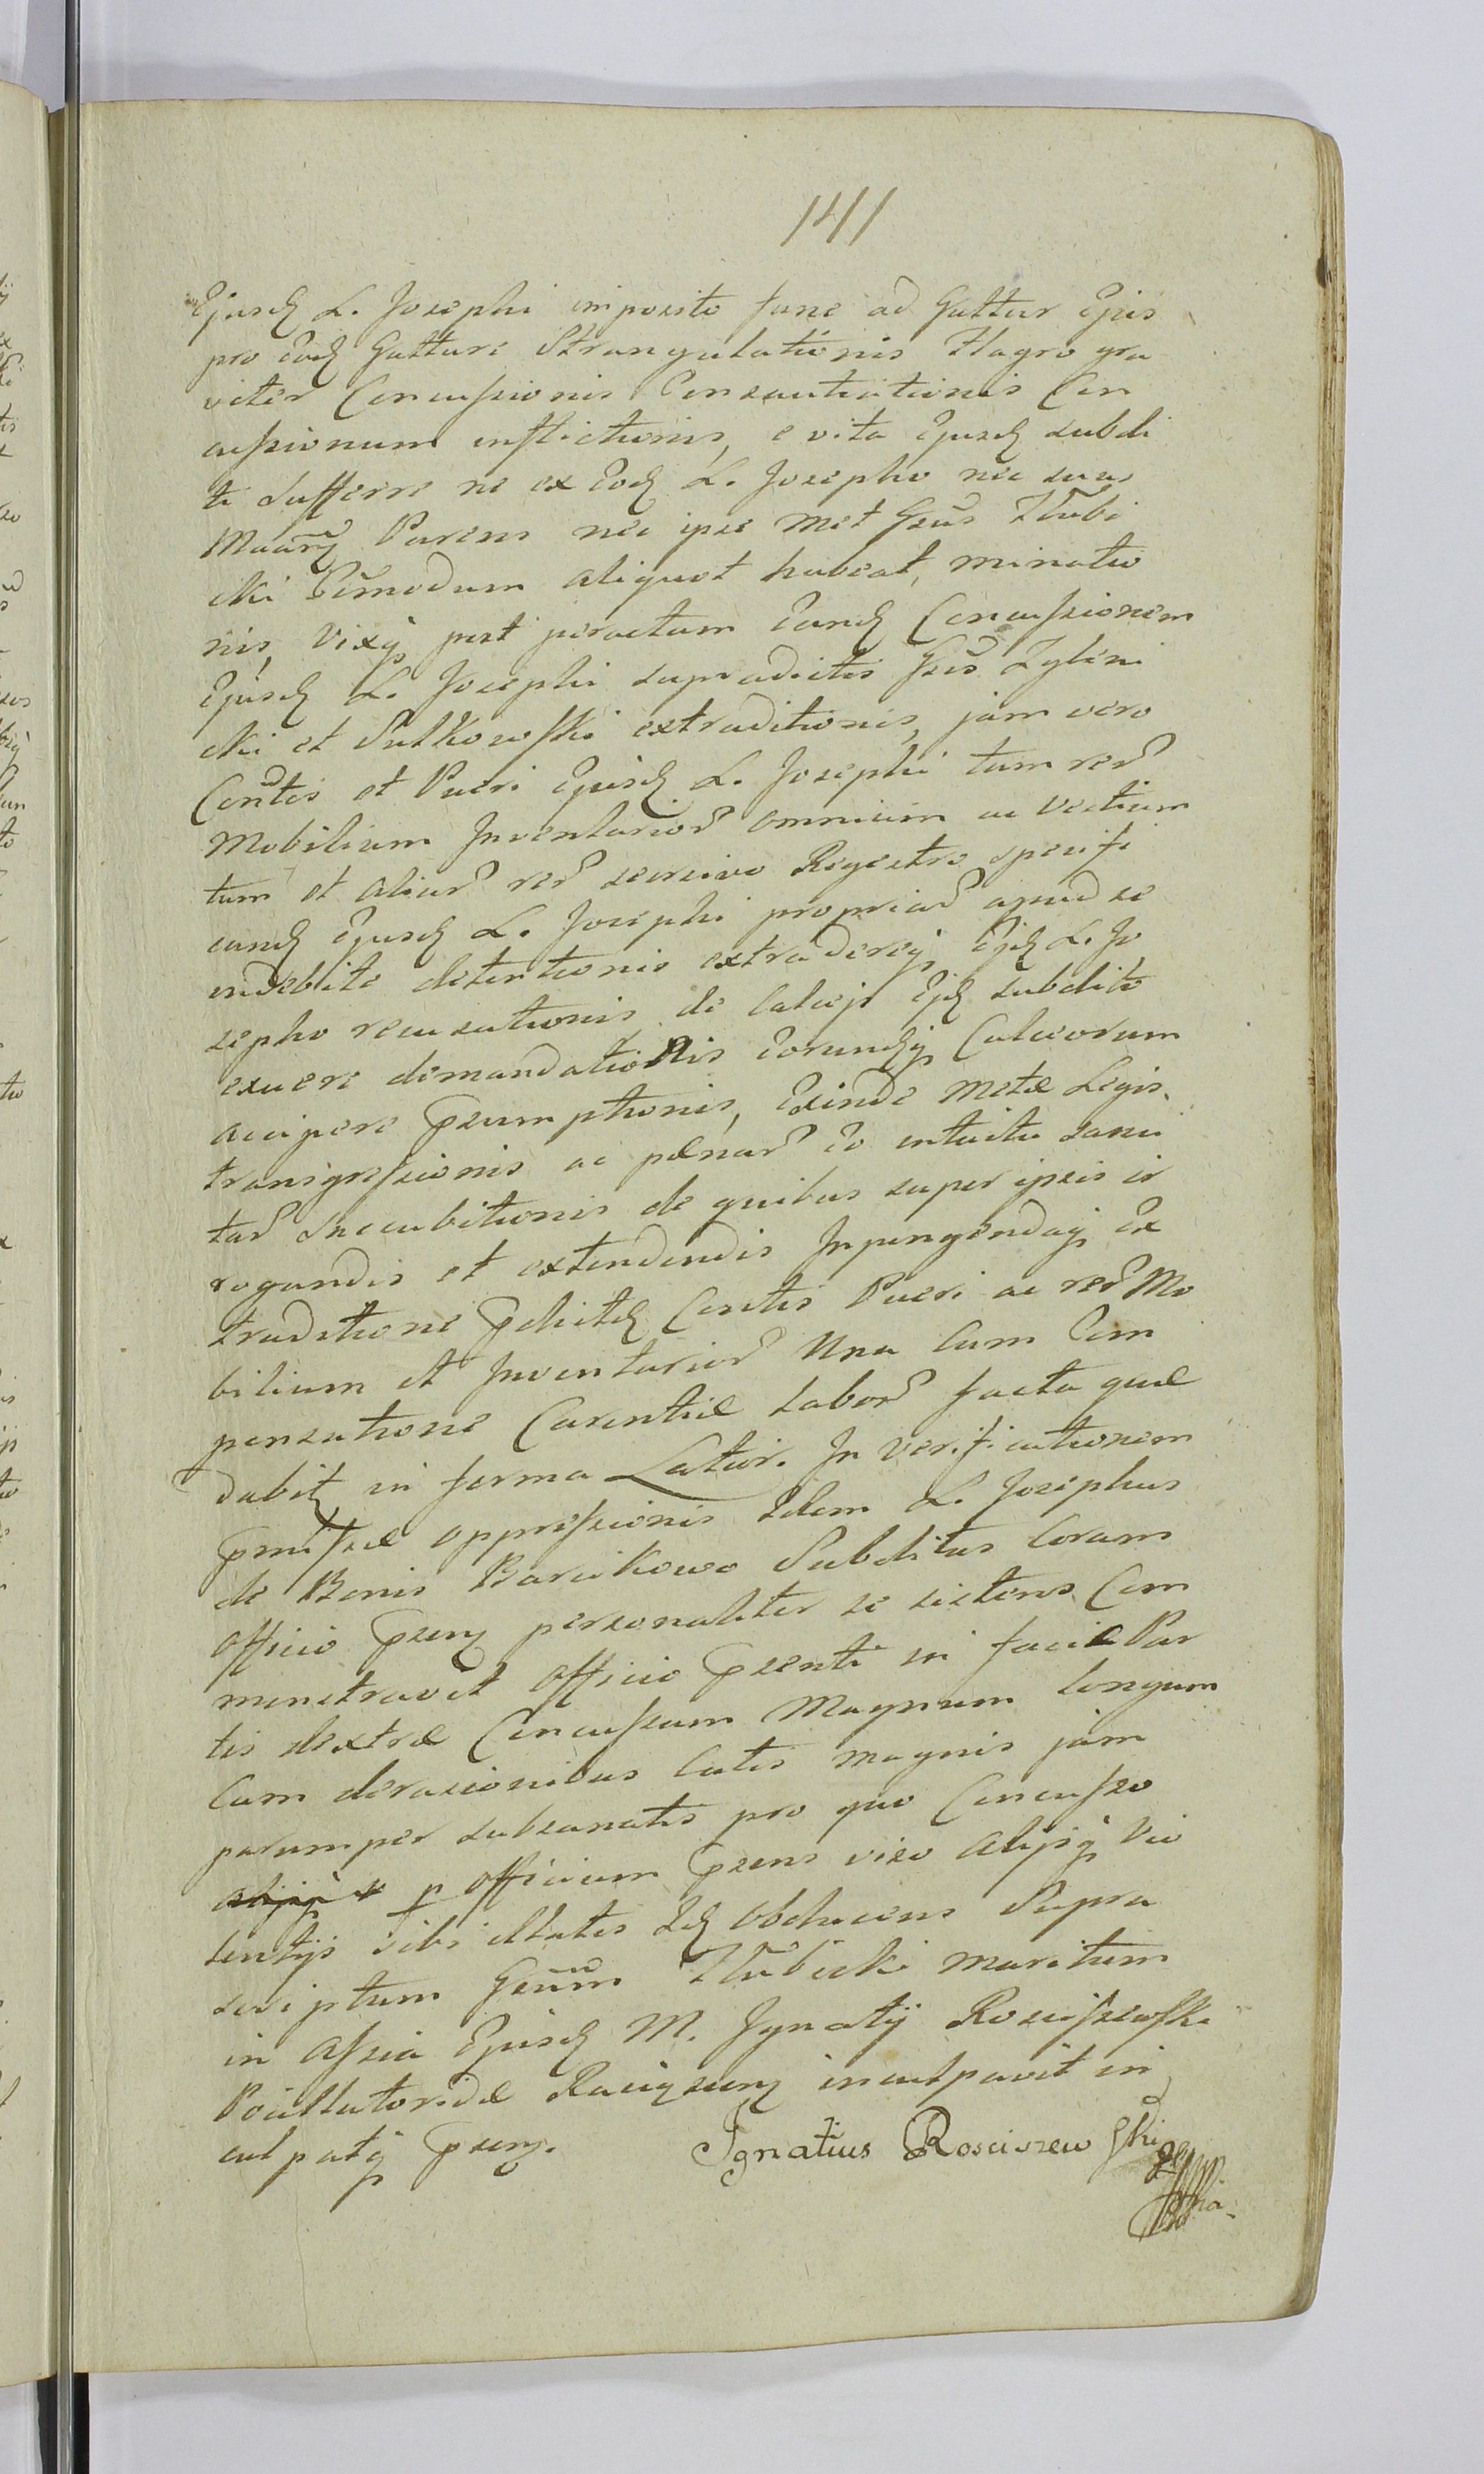 141
Ejusd L. Josephi imposito fune ad Guttur Ejus
pro eod Gutture Strangulationis Flagro gra
viter Concussionis Consautiationis Con
cussionum inflictionis, e vita Ejusd subdi
ti Sufferre ne ex Eod L. Josepho nec suus
Parens nec ipse Met Gsus Zlubi
cki Comodum aliquot habeat, minatio
nis, Vixq post peractam Eand Concussionem
Ejusd L. Josephi supradictis Gsis
cki et Sulkowski extraditionis, jam vero
Contis et Pueri Ejusd L. Josephi tum rer
Mobilium Inventarior omnium ac Vestium
tum et aliar rer seorsivo Regestro specifi
cand Ejusd L. Josephi propriar apud se
indebite detentionis extradereq Ejd L. Jo
sepho recusationis, de Calceis Ejd subdito
exuere demandationis Eorundq Calceorum
accipere Psumptionis, Exinde Metæ Legis
transgressionis ac pænar Eo intuitu sanci
tar Succubitionis de quibus super ipsis ir
rogandis et extendendis Inpingendaq Ex
traditione Pdictd Contis Pueri ac rer Mo
bilium et Inventarior Una Cum Com
pensatione Carentiæ Labor facta quæ
dabit in forma Latior. In verificationem
Pmissæ oppressionis Idem L. Josephus
de Bonis Barcikowo Subditus Coram
Officio Psenz personaliter se sistens Com
monstravit Officio Psenti in facie Par
tis dextræ Concussum Magnum longum
Cum derasionibus Cutis magnis jam
parumper subsanatis pro quo Concusso
p Officium Psens viso Alijsq Vio
lentijs sibi illatis Id Obducens Supra
scriptum Gsum Zlubicki maritum
in Assia Ejusd M. Ignatij Rosciszewski
Pocillatoridæ Raciązenz inculpavit in
culpatq Psenz. Ignatius Rosciszewski